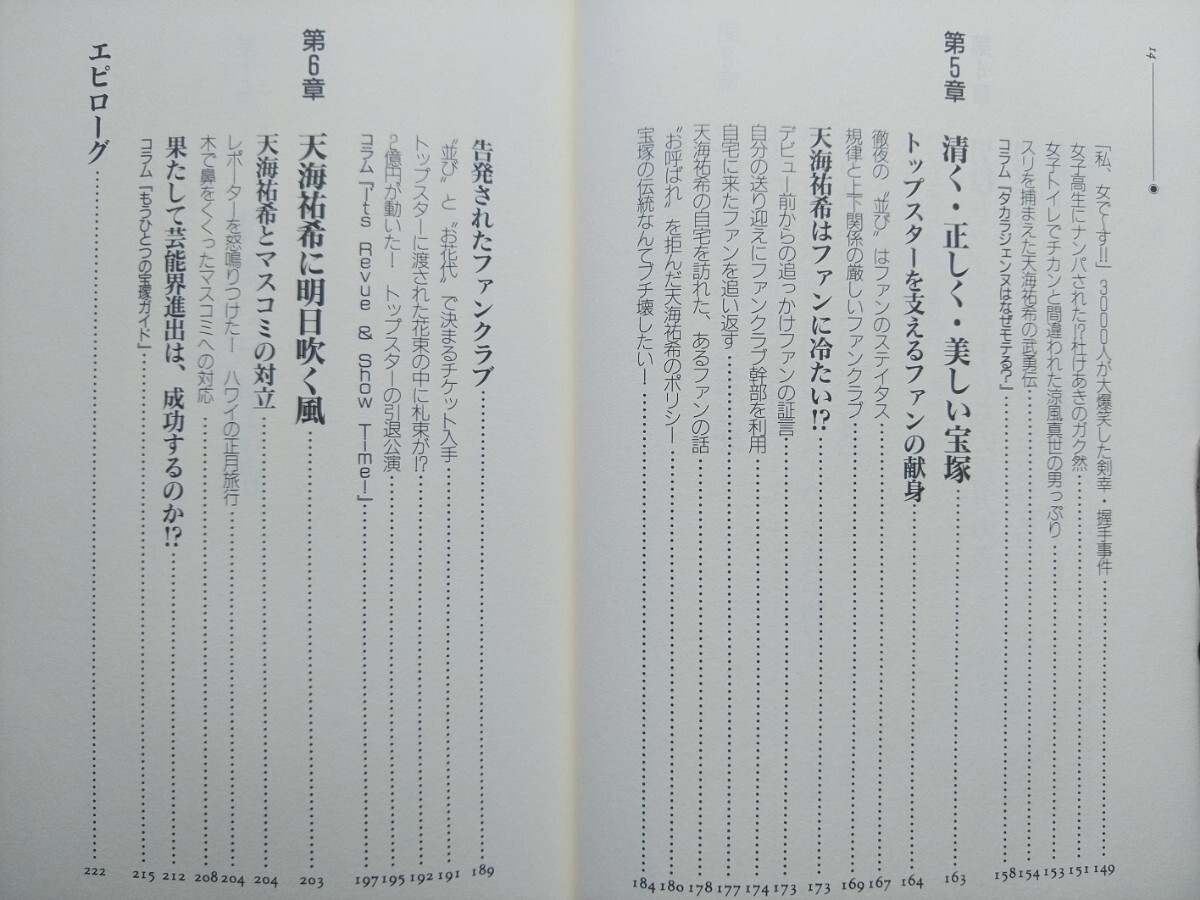 14
「私、女で〜す!!」3000人が大爆笑した剣幸・握手事件 149
女子高生にナンパされた!?杜けあきのガク然 151
女子トイレでチカンと間違われた涼風真世の男っぷり 153
スリを捕まえた天海祐希の武勇伝 154
コラム「タカラジェンヌはなぜモテる?」 158
第5章 清く・正しく・美しい宝塚 163
トップスターを支えるファンの献身 164
徹夜の〝並び〟はファンのステイタス 167
規律と上下関係の厳しいファンクラブ 169
天海祐希はファンに冷たい!? 173
デビュー前からの追っかけファンの証言 173
自分の送り迎えにファンクラブ幹部を利用 174
自宅に来たファンを追い返す 177
天海祐希の自宅を訪れた、あるファンの話 178
〝お呼ばれ〟を拒んだ天海祐希のポリシー 180
宝塚の伝統なんてブチ壊したい! 184
告発されたファンクラブ 189
〝並び〟と〝お花代〟で決まるチケット入手 191
トップスターに渡された花束の中に札束が!? 192
2億円が動いたー トップスターの引退公演 195
コラム「Its Revue & Show Timeー」 197
第6章 天海祐希に明日吹く風 203
天海祐希とマスコミの対立 204
レポーターを怒鳴りつけたー ハワイの正月旅行 204
木で鼻をくくったマスコミへの対応 208
果たして芸能界進出は、成功するのか!? 212
コラム「もうひとつの宝塚ガイド」 215
エピローグ 222